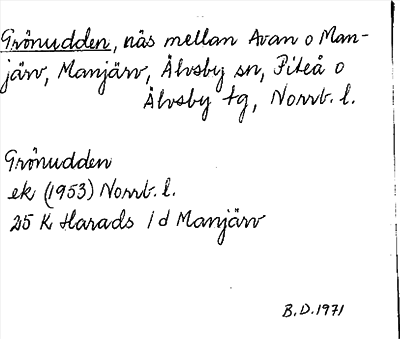 Grönudden, näs mellan Avan o Man-
järv, Manjärv, Älvsby sn, Piteå o
Älvsby tg, Norrb. l.
Grönudden
ek (1953) Norrb. l.
25 K Harads 1 d Manjärv
B.D. 1971